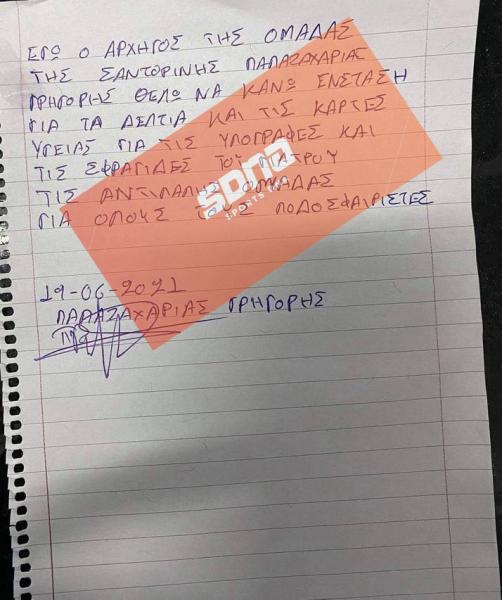 ΕΓΩ Ο ΑΡΧΗΓΟΣ ΤΗΣ ΟΜΑΔΑΣ
ΤΗΣ ΣΑΝΤΟΡΙΝΗΣ ΠΑΠΑΖΑΧΑΡΙΑΣ
ΓΡΗΓΟΡΗΣ ΘΕΛΩ ΝΑ ΚΑΝΩ ΕΝΣΤΑΣΗ
ΓΙΑ ΤΑ ΔΕΛΤΙΑ ΚΑΙ ΤΙΣ ΚΑΡΤΕΣ
ΥΓΕΙΑΣ ΓΙΑ ΤΙΣ ΥΠΟΓΡΑΦΕΣ ΚΑΙ
ΤΙΣ ΣΦΡΑΓΙΔΕΣ ΤΟΥ ΓΙΑΤΡΟΥ
ΤΙΣ ΑΝΤΙΠΑΛΗΣ ΟΜΑΔΑΣ
ΓΙΑ ΟΛΟΥΣ ΤΟΥΣ ΠΟΔΟΣΦΑΙΡΙΣΤΕΣ
SDNA
SPORTS
19-06-2021
ΠΑΠΑΖΑΧΑΡΙΑΣ ΓΡΗΓΟΡΗΣ